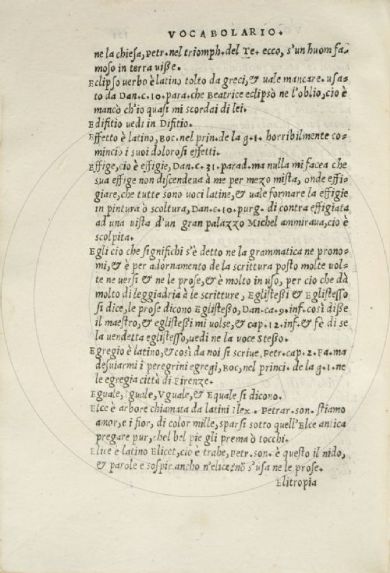 VOCABOLARIO.
ne la chiesa, Petr. nel triomph. del Te. ecco, s'un huom fa-
moso in terra visse.
Eclipso verbo è latino tolto da greci, & vale mancare. usa-
to da Dan. c. 10. para. che Beatrice eclipsò ne l'oblio, cio è
mancò ch'io quasi mi scordai di lei.
Edifitio vedi in Difitio.
Effetto è latino, Boc. nel prin. de la g. 1. horribilmente co-
minciò i suoi dolorosi effetti.
Effige, cio è effigie, Dan. c. 31. parad. ma nulla mi facea che
sua effige non discendeva à me per mezo mista, onde effi-
giare, che tutte sono voci latine, & vale formare la effigie
in pintura ò scoltura, Dan. c. 10. purg. di contra effigiata
ad una vista d'un gran palazzo Michel ammirava, cio è
scolpita.
Egli cio che significhi s'è detto ne la grammatica ne prono-
mi, & è per adornamento de la scrittura posto molte vol-
te ne versi & ne le prose, & è molto in uso, per cio che dà
molto di leggiadria è le scritture, Eglistessi & Eglistesso
si dice, le prose dicono Eglistesso, Dan. ca. 9. inf. così disse
il maestro, & eglistessi mi volse, & cap. 12. inf. & fè di se
la vendetta eglistesso, vedi ne la voce Stesso.
Egregio è latino, & così da noi si scrive, Petr. cap. 2. Fa. ma
desviarmi i peregrini egregi, Boc. nel princi. de la g. 1. ne
le egregia città di Firenze.
Eguale, iguale, Vguale, & Equale si dicono.
Elce è arbore chiamata da latini ilex. Petrar. son. stiamo
amor, e i fior, di color mille, sparsi sotto quell'Elce antica
pregare pur, chel bel pie gli prema ò tocchi.
è latino Elicet, cio è trahe, Petr. son. è questo il nido,
& parole e sospir ancho s'usa ne le prose.
Elitropia